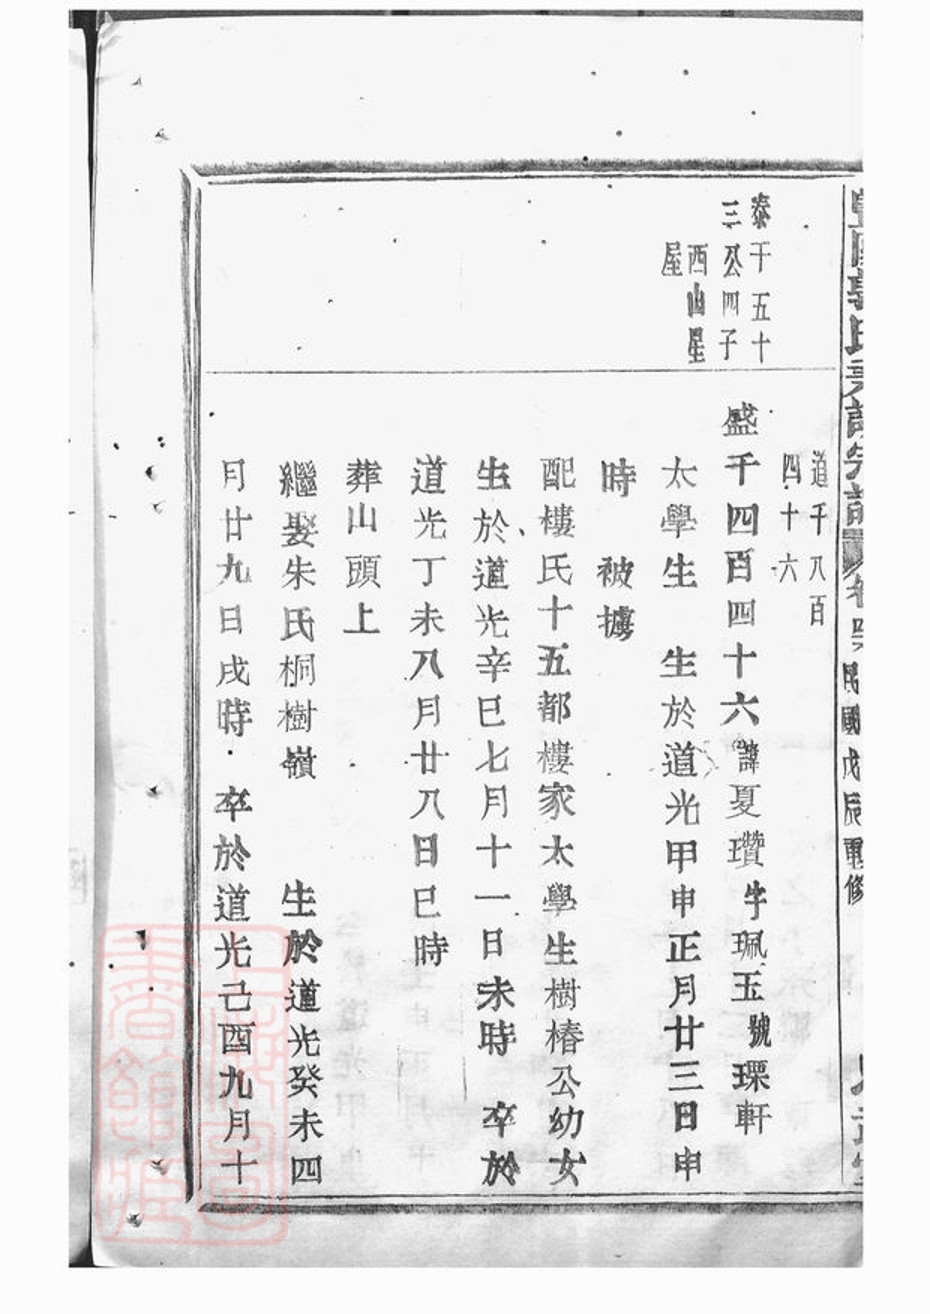 郭氏
民國戊辰重修
泰千五十
三公四子
西山星
屋
道千八百
四十六
盛千四百四十六諱夏瓚字珮玉號瑮軒
太學生 生於道光甲申正月廿三日申
時 被擄
配樓氏十五都樓家太學生樹椿公幼女
生於道光辛巳七月十一日未時 卒於
道光丁未八月廿八日巳時
葬山頭上
繼娶朱氏桐樹嶺 生於道光癸未四
月廿九日戌時 卒於道光己酉九月十